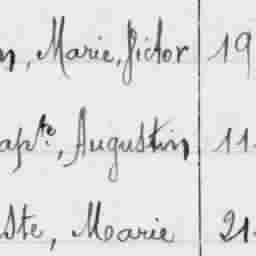 n, Marie, Victor 19
apte, Augustin 11
ste, Marie 21